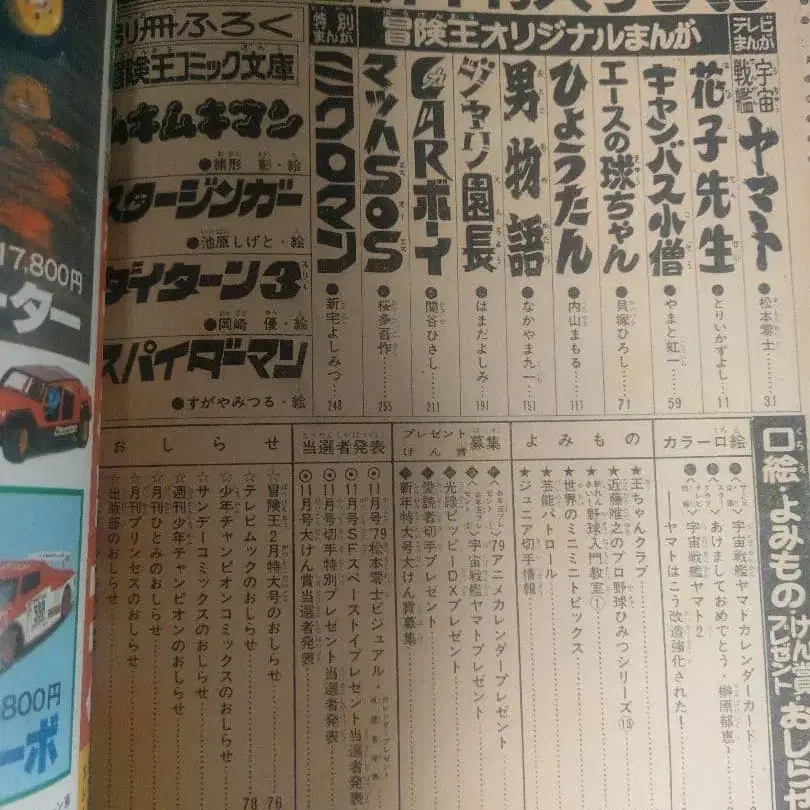 テレビまんが
宇宙戦艦ヤマト
●松本零士……31
冒険王オリジナルまんが
花子先生
●とりいかずよし……11
キャンバス小僧
●やまと虹一……59
エースの球ちゃん
●貝塚ひろし……71
ひょうたん
●内山まもる……111
男物語
●なかやま九一……151
ジャリン園長
●はまだよしみ……191
CARボーイ
●関谷ひさし……211
マッハSOS
●桜多吾作……255
特別まんが
ミクロマン
●新宅よしみつ……240
別冊ふろく
冒険王コミック文庫
ムキムキマン
●緒形 彰・絵
スタージンガー
●池原しげと・絵
ダイターン3
●岡崎 優・絵
スパイダーマン
●すがやみつる・絵
口絵・よみもの・けん賞・プレゼント・おしらせ
カラー口絵
宇宙戦艦ヤマトカレンダーカード
あけましておめでとう・榊原郁恵
宇宙戦艦ヤマト2
──ヤマトはこう改造強化された!
よみもの
★王ちゃんクラブ
★近藤唯之のプロ野球ひみつシリーズ⑬
★野球入門教室①
★世界のミニミニトピックス
★芸能パトロール
★ジュニア切手情報
プレゼント けん賞 募集
'79アニメカレンダープレゼント
宇宙戦艦ヤマトプレゼント
光線ビッビーDXプレゼント
愛読者切手プレゼント
新年特大号大けん賞募集
当選者発表
◉11月号'79松本零士ビジュアル・カレンダープレゼント当選者発表
◉11月号SFスペーストイプレゼント当選者発表
◉11月号切手特別プレゼント当選者発表
◉11月号大けん賞当選者発表
おしらせ
☆冒険王2月特大号のおしらせ 76
☆テレビムックのおしらせ 78
☆少年チャンピオンコミックスのおしらせ
☆サンデーコミックスのおしらせ
☆週刊少年チャンピオンのおしらせ
☆月刊ひとみのおしらせ
☆月刊プリンセスのおしらせ
☆出版部のおしらせ
17,800円
ーター
800円
ーボ